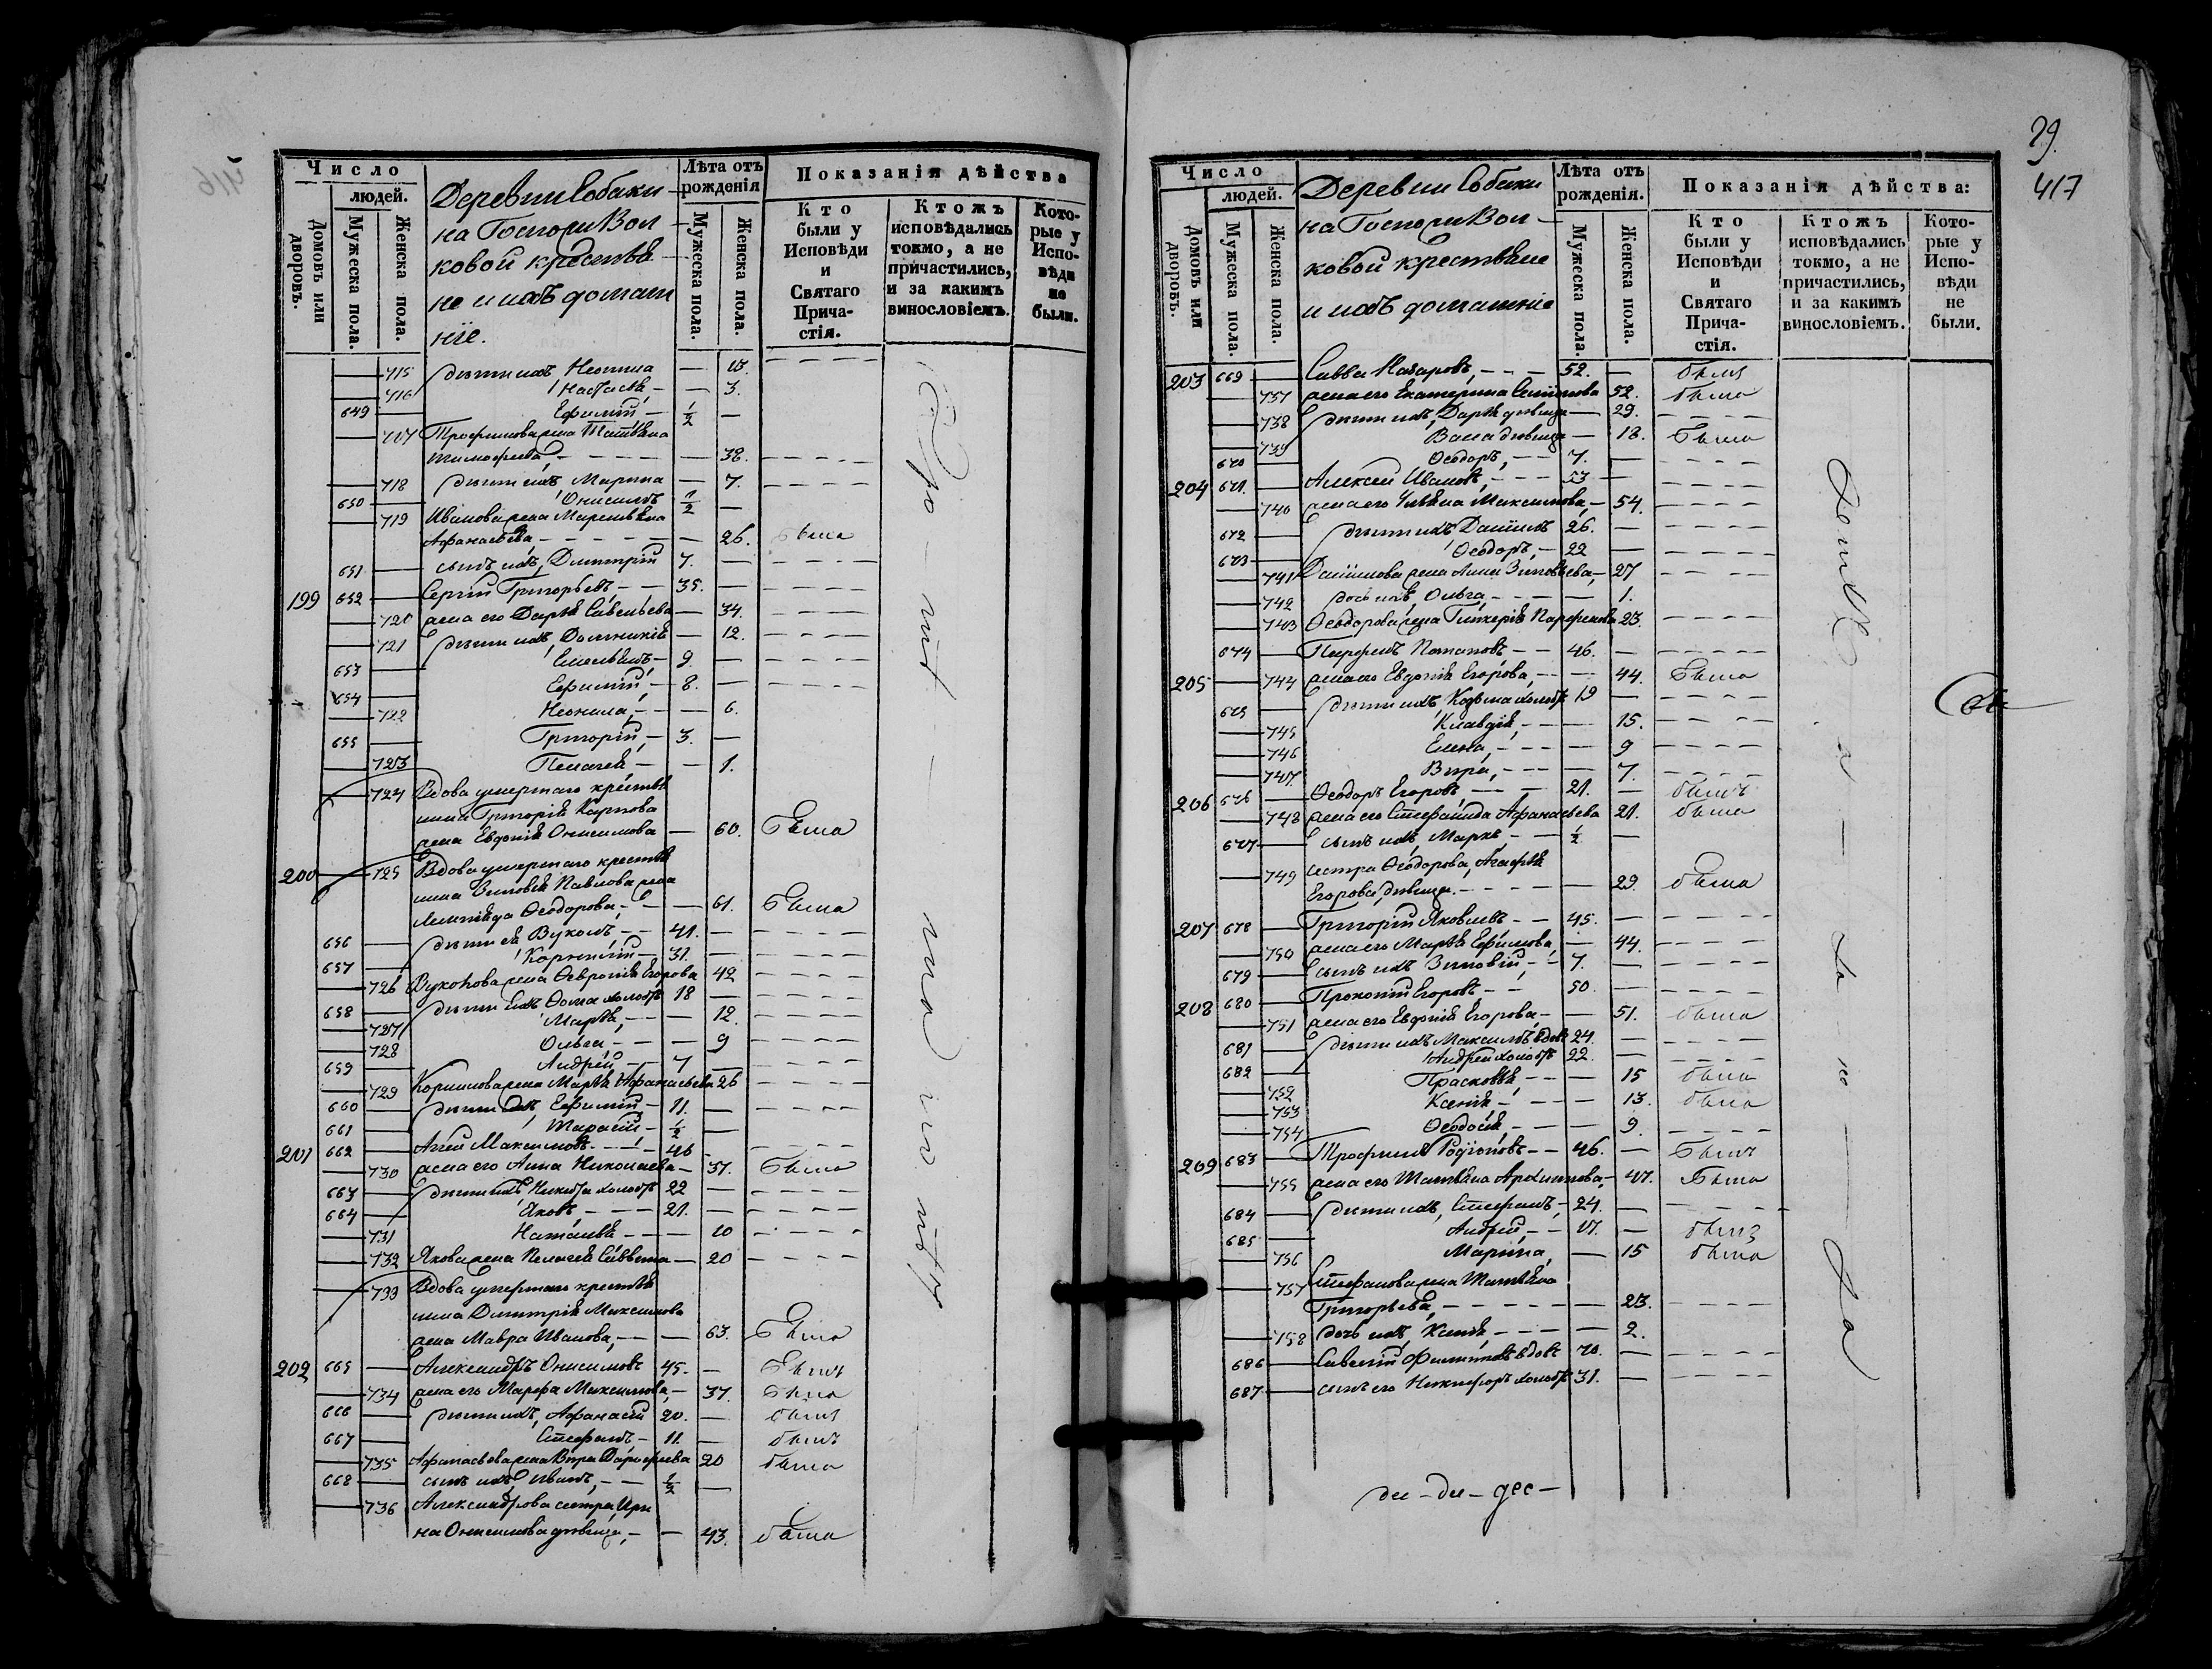 Число
людей.
Домовъ или дворовъ.
Мужеска пола.
Женска пола.
Деревни Собаки
на Госпожи Вол
ковой крестья
не и ихъ домаш
ніе.
Лѣта отъ
рожденія
Мужеска пола.
Женска пола.
Показанія дѣйства
Кто
были у
Исповѣди
и
Святаго
Прича-
стія.
Ктожъ
исповѣдались
токмо, а не
причастились,
и за какимъ
винословіемъ.
Кото-
рые у
Испо-
вѣди
не
были.
715 дѣти ихъ
716 Настасья 3.
649 Ефимій ½
717 Трофимова жена Татьяна
Тимофеева, 38.
718 дѣти ихъ Марина 7.
650 Онисимъ ½
719 Иванова жена
Афанасьева, 26. была
651 сынъ ихъ, Дмитрій 7.
199 652 Сергій Григорьевъ, 35.
720 жена его Дарья Савельева 34.
721 дѣти ихъ, Домникія 12.
653 Емельянъ 9.
654 Ефимій 8.
722 Неонила, 6.
655 Григорій, 3.
723 Пелагея 1.
724 Вдова умершаго крестья
нина Григорія Карпова
жена Евдокія Онисимова 60. была
200 725 Вдова умершаго крестья
нина Зиновія Павлова жена
Ѳеодорова, 61. была
656 дѣти ея Вуколъ 41.
657 Корнилій 31.
726 Вуколова жена Ѳевронія Егорова 42
658 дѣти ихъ Ѳома холостъ 18
727 Марья, 12.
728 Ольга, 9
659 Андрей 7
729 Корнилова жена Марья Афанасьева 26
660 дѣти ихъ, Ефимій, 11.
661 Тарасій ½
201 662 Агей Максимовъ 46
730 жена его Анна Николаева 37. была
663 дѣти ихъ Никита холостъ 22
664 Яковъ, 21.
731 Наталья 10
732 Якова жена Пелагея Саввина 20
733 Вдова умершаго крестья
нина Дмитрія Максимова
жена Мавра Иванова, 63. была
202 665 Александръ Онисимовъ 45. былъ
734 жена его Марфа Максимова, 37. была
666 дѣти ихъ, Афанасій 20. былъ
667 Стефанъ 11. былъ
735 Афанасьева жена Вѣра Дорофеева 20 была
668 сынъ ихъ, Иванъ, ½
736 Александрова сестра Ири
на Онисимова дѣвица, 43. была
29.
417
Число
людей.
Домовъ или дворовъ.
Мужеска пола.
Женска пола.
Деревни Собаки
на Госпожи Вол
ковой крестьяне
и ихъ домашніе
Лѣта отъ
рожденія.
Мужеска пола.
Женска пола.
Показанія дѣйства:
Кто
были у
Исповѣди
и
Святаго
Прича-
стія.
Ктожъ
исповѣдались
токмо, а не
причастились,
и за какимъ
винословіемъ.
Кото-
рые у
Испо-
вѣди
не
были.
203 669 Савва Назаровъ, 52. былъ
737 жена его Екатерина Семенова 52. была
738 дѣти ихъ, Дарья дѣвица 29.
739 Васса дѣвица 18. была
670 Ѳеодоръ, 7.
204 671. Алексей Ивановъ, 53
740 жена его Ульяна Максимова, 54.
672 дѣти ихъ, Даніилъ 26.
673 Ѳеодоръ, 22
741 Даніилова жена Анна Зиновьева, 27
742 дочь ихъ, Ольга, 1.
743 Ѳеодорова жена Гликерія Парфенова 23.
674 Парфенъ Потаповъ 46.
205 744 жена его Евдокія Егорова, 44. была
675 дѣти ихъ, Козьма холостъ 19
745 Клавдія, 15.
746 Елена, 9
747. Вѣра, 7.
206 676 Ѳеодоръ Егоровъ, 21. былъ
748 жена его Стефанида Афанасьева 21. была
677 сынъ ихъ, Маркъ ½
749 сестра Ѳеодорова, Агафья
Егорова, дѣвица. 29. была
207 678 Григорій Яковлевъ 45.
750 жена его Марья Ефимова, 44.
679 сынъ ихъ Зиновій 7.
208 680 Прокопій Егоровъ 50.
751 жена его Евдокія Егорова, 51. была
681 дѣти ихъ Максимъ вдовъ 24.
682 Андрей холостъ 22.
752 Прасковья, 15 была
753 Ксенія 13. была
754 Ѳеодосія 9.
209 683 Трофимъ Родіоновъ 46. былъ
755 жена его Татьяна Архиппова, 47. была
684 дѣти ихъ, Стефанъ, 24.
685 Андрей, 17. былъ
756 Марина, 15 была
757 Стефанова жена Татьяна
Григорьева, 23.
758 дочь ихъ, Ксенія, 2.
686 Савелій Филиповъ вдовъ 70.
687 сынъ его Никифоръ холостъ 31.